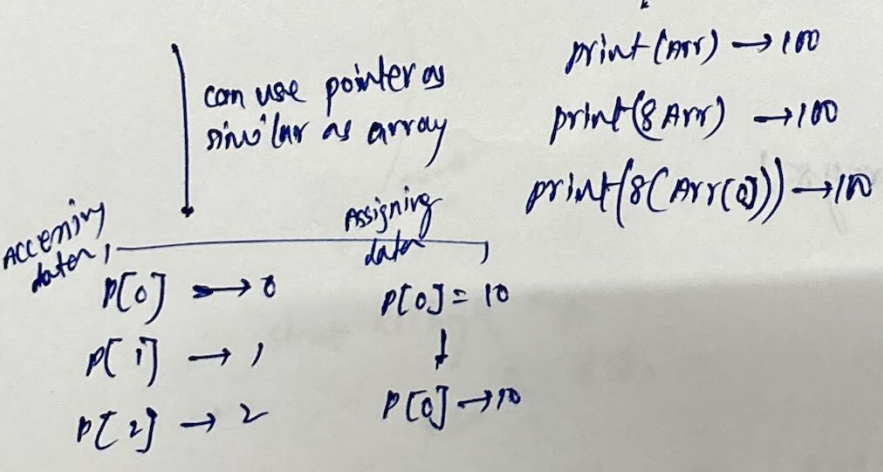 can use pointer as
similar as array
print(Arr) → 100
print(&Arr) → 100
print(&(Arr[0])) → 100
Accessing
data
P[0] → 0
P[1] → 1
P[2] → 2
Assigning
data
P[0] = 10
↓
P[0] → 10